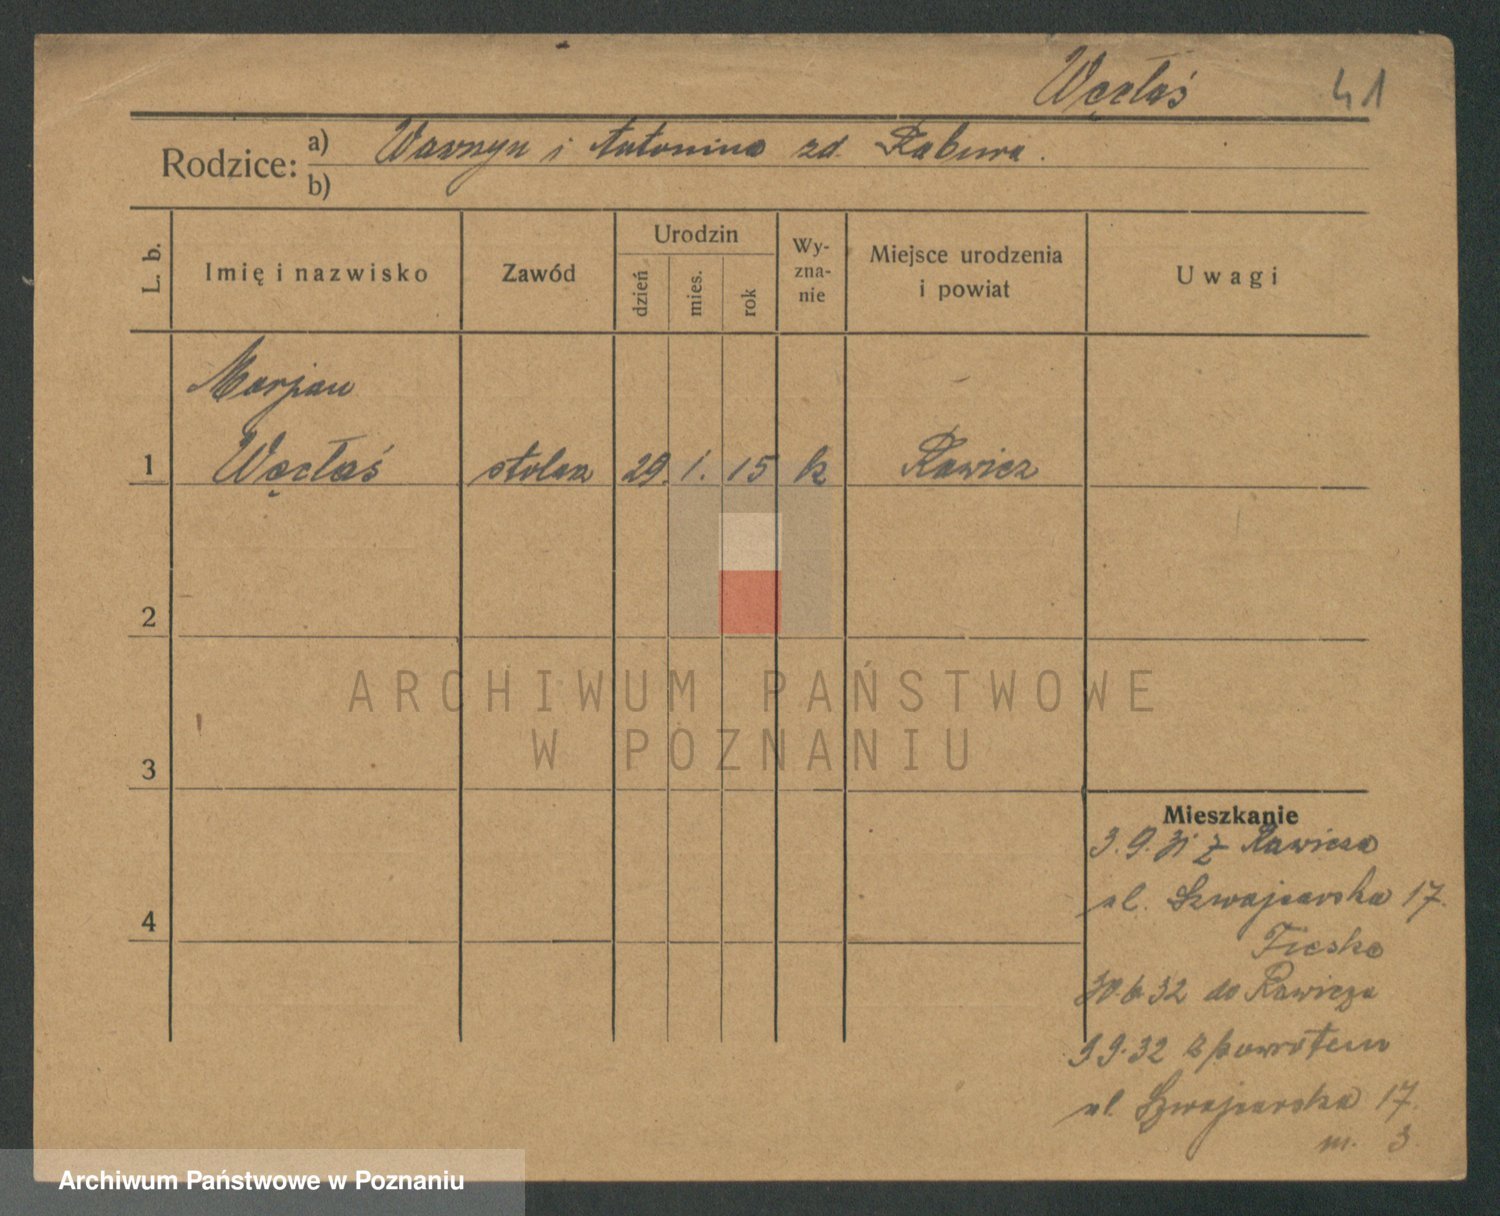 Węcłaś 41
Rodzice: a) Wawrzyn i Antonina zd. Rabura.
b)
L. b.
Imię i nazwisko
Zawód
Urodzin
dzień
mies.
rok
Wy-
zna-
nie
Miejsce urodzenia
i powiat
Uwagi
Marjan
1 Węcłaś stolarz 29. 1. 15 k Rawicz
2
ARCHIWUM PAŃSTWOWE
W POZNANIU
3
Mieszkanie
3.9.31 z Rawicza
ul. Szwajcarska 17.
4
30.6 32 do Rawicza
3 9.32 z powrotem
ul. Szwajcarska 17.
m. 3.
Archiwum Państwowe w Poznaniu